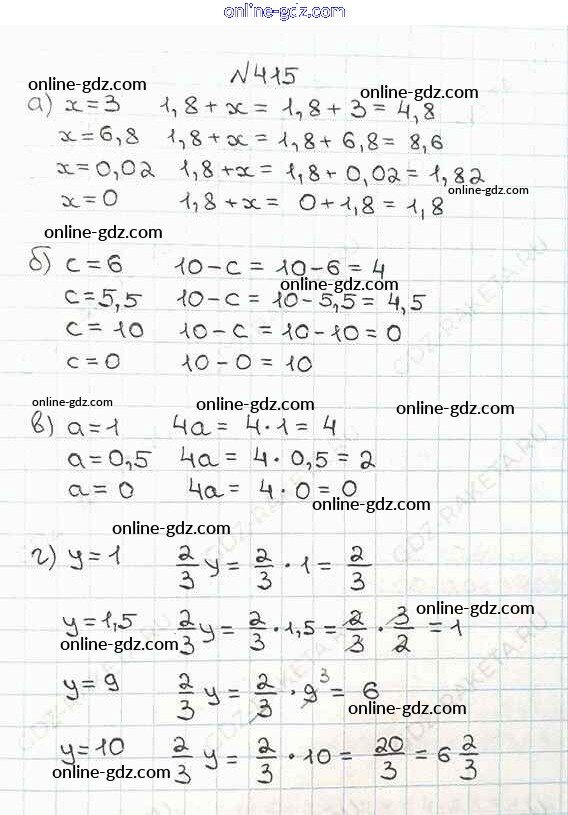 online-gdz.com
№415
online-gdz.com online-gdz.com
а) x=3 1,8+x= 1,8+3=4,8
x=6,8 1,8+x=1,8+6,8=8,6
x=0,02 1,8+x=1,8+0,02=1,82
online-gdz.com
x=0 1,8+x= 0+1,8=1,8
online-gdz.com online-gdz.com
б) c=6 10-c= 10-6=4
online-gdz.com
c=5,5 10-c= 10-5,5=4,5
c=10 10-c= 10-10=0
c=0 10-0=10
GDZ-RAKETA.RU
online-gdz.com online-gdz.com online-gdz.com
в) a=1 4a= 4·1=4
a=0,5 4a= 4·0,5=2
a=0 4a= 4·0=0
online-gdz.com
GDZ-RAKETA.RU GDZ-RAKETA.RU
online-gdz.com
г) y=1 2/3 y= 2/3 ·1= 2/3
online-gdz.com
y=1,5 2/3 y= 2/3 ·1,5= 2/3 · 3/2 =1
online-gdz.com online-gdz.com
y=9 2/3 y= 2/3 ·9³= 6
GDZ-RAKETA.RU GDZ-RAKETA.RU
online-gdz.com
y=10 2/3 y= 2/3 ·10= 20/3 =6 2/3
online-gdz.com online-gdz.com